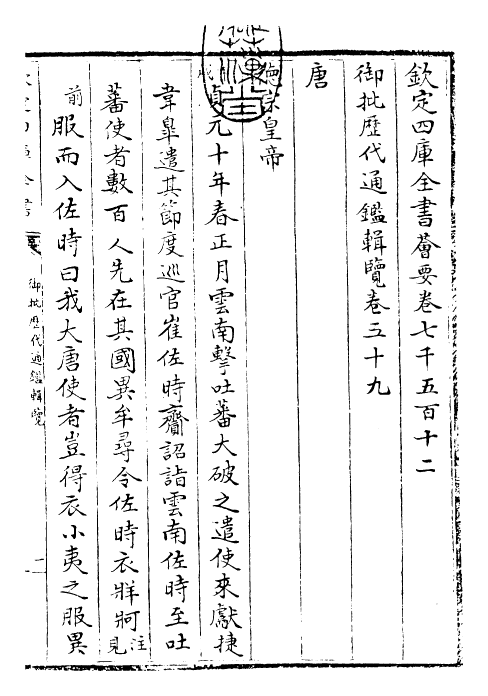 欽定四庫全書薈要卷七千五百十二
御批歷代通鑑輯覽卷五十九
唐
德宗皇帝
貞元十年春正月雲南擊吐蕃大破之遣使來獻捷
韋臯遣其節度巡官崔佐時齎詔詣雲南佐時至吐
蕃使者數百人先在其國異牟尋令佐時衣牂牁注見
前服而入佐時曰我大唐使者豈得衣小夷之服異
御批歷代通鑑輯覽